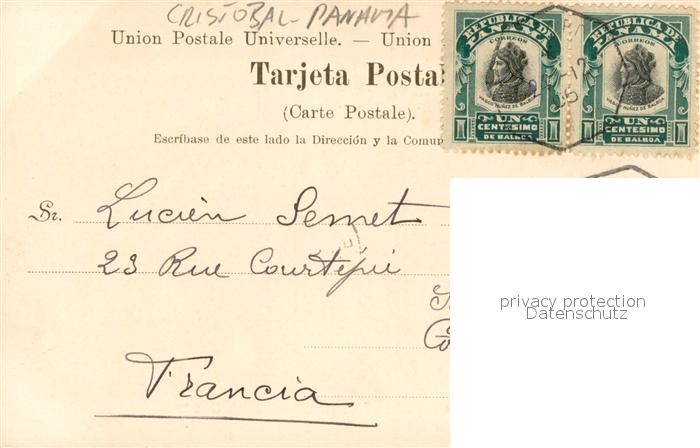 CRISTOBAL - PANAMA
Union Postale Universelle. — Union
Tarjeta Postal
(Carte Postale).
Escríbase de este lado la Dirección y la Comun
REPUBLICA DE PANAMA
CORREOS
VASCO NUÑEZ DE BALBOA
1 UN CENTESIMO 1
DE BALBOA
REPUBLICA DE PANAMA
CORREOS
VASCO NUÑEZ DE BALBOA
1 UN CENTESIMO 1
DE BALBOA
Sr. Lucien Semet
23 Rue Courtépié
Francia
privacy protection
Datenschutz